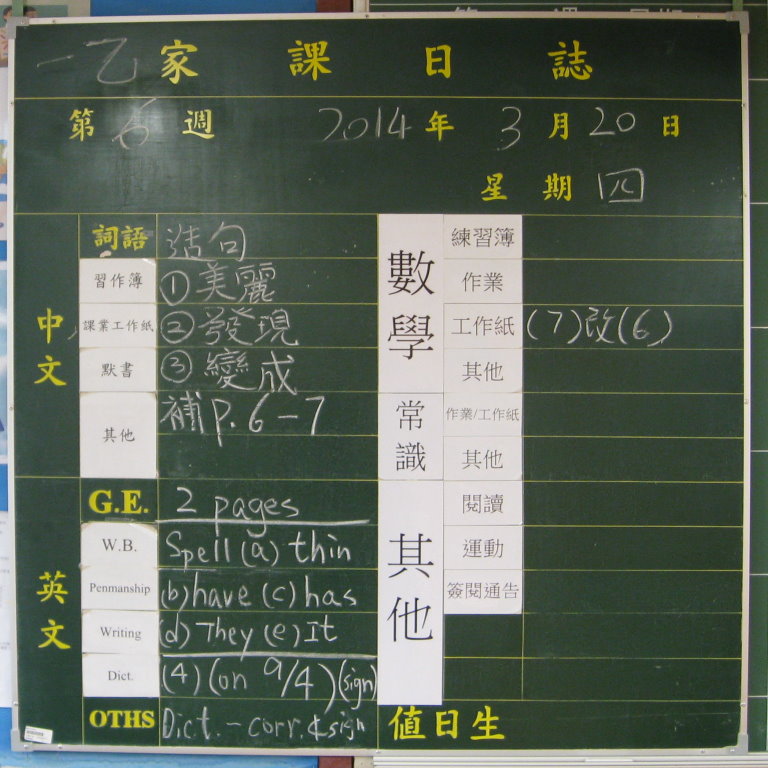 一乙家課日誌
第6週 2014年3月20日
星期四
中文
詞語 造句
習作簿 ①美麗
課業工作紙 ②發現
默書 ③變成
其他 補p.6-7
英文
G.E. 2 pages
W.B. Spell (a) thin
Penmanship (b) have (c) has
Writing (d) They (e) It
Dict. (4) (on 9/4) (sign)
OTHS Dict. - corr. & sign
數學
練習簿
作業
工作紙 (7)改(6)
其他
常識
作業/工作紙
其他
其他
閱讀
運動
簽閱通告
值日生